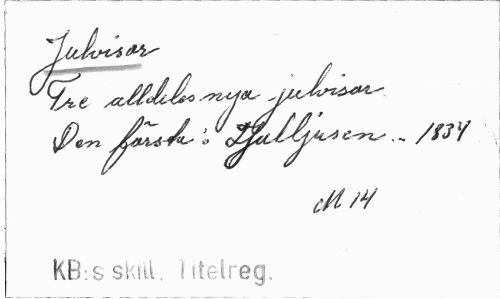 Julvisor
Tre alldeles nya julvisor.
Den första: Djulljusen .. 1834
M 14
KB:s skill. Titelreg.